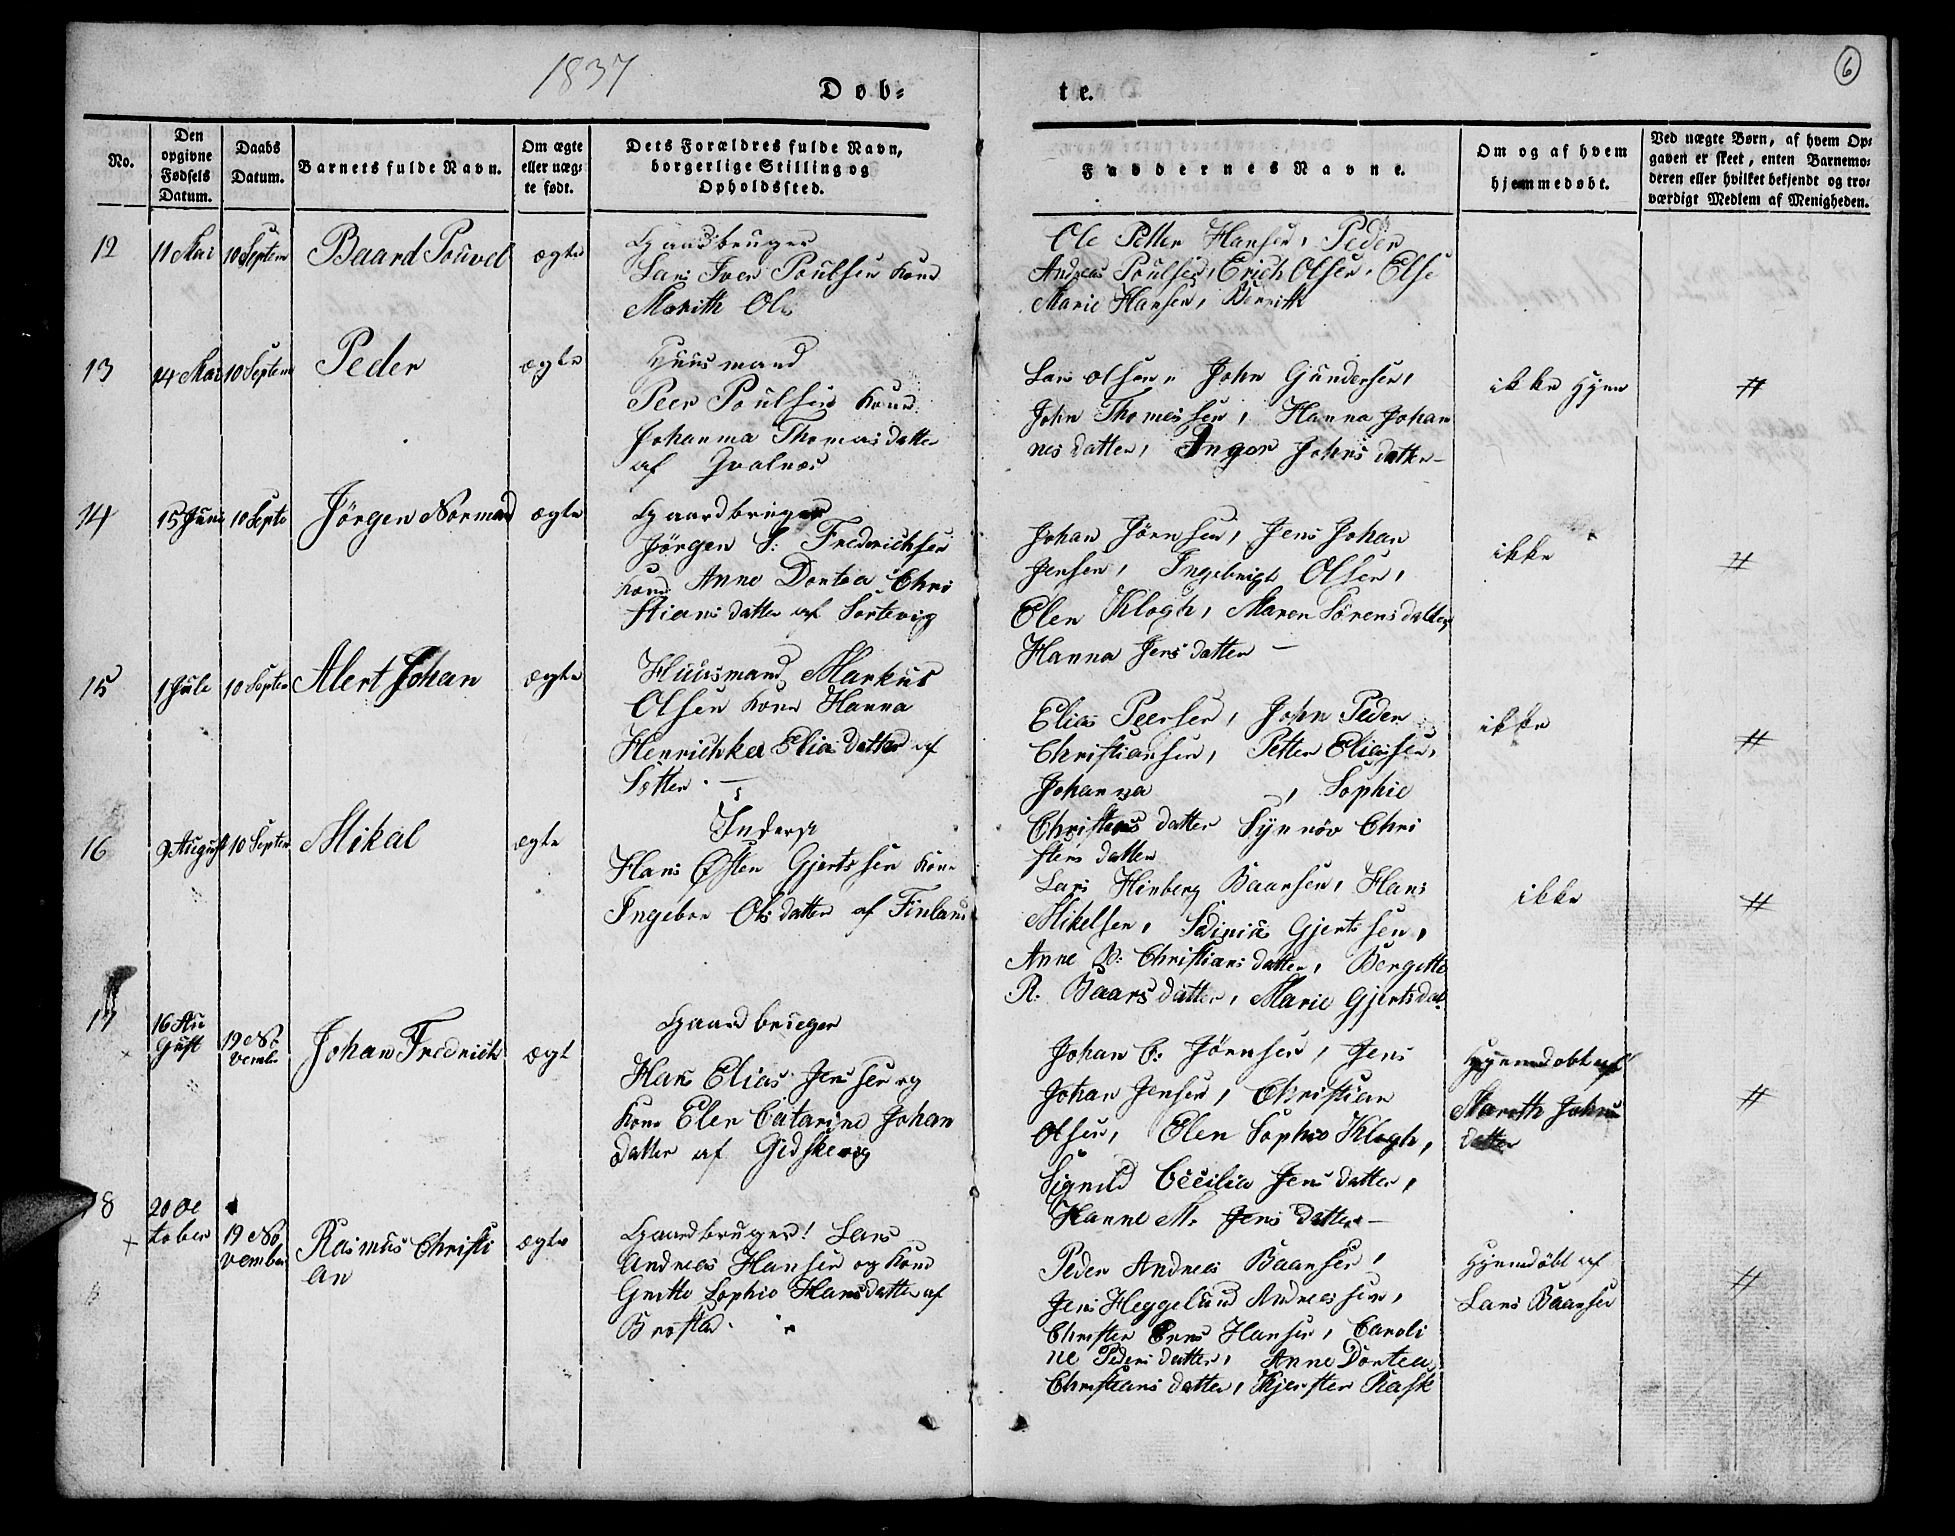 1837
6
Døb-
te.
No.
Den
opgivne
Fødsels
Datum.
Daabs
Datum.
Barnets fulde Navn.
Om ægte
eller uæg-
te født.
Dets Forældres fulde Navn,
borgerlige Stilling og
Opholdssted.
Faddernes Navne.
Om og af hvem
hjemmedøbt.
Ved uægte Børn, af hvem Op-
gaven er skeet, enten Barnemo-
deren eller hvilket bekjendt og tro-
værdigt Medlem af Menigheden.
12
11 Mai
10 Septem
Baard Pouvel
ægte
Gaardbruger
Lars Iver Poulsen Kone
Marith Ols
Ole Petter Hansen, Peder
Andreas Poulsen, Erich Olsen, Else
Marie Hansen, Berrith
13
24 Mai
10 Septem
Peder
ægte
Huusmand
Peer Poulsen Kone
Johanna Thomasdatter
af
Lars Olsen, John Gundersen,
John Thomessen, Hanna Johan
nesdatter, Inger Johnsdatter —
ikke Hjem
#
14
15 Juni
10 Septe
Jörgen Normand
ægte
Gaardbruger
Jörgen S: Fredrichsen
Kone Anne Dortea Chri
stiansdatter af Sortevig
Johan Jörnsen, Jens Johan
Jensen, Ingebrigt Olsen,
Elen Klogh, Maren Sörensdatter
Hanna Jensdatter —
ikke
#
15
1 Jule
10 Septem
Alert Johan
ægte
Huusmand Markus
Olsen Kone Hanna
Henrichka Eliasdatter af
Sötter. —
Elias Peersen, John Peder
Christiansen, Petter Eliassen,
Johanna , Sophie
Christensdatter Synnöv Chri
stensdatter
ikke
#
16
9 August
10 Septem
Mikal
ægte
Inderst
Hans Østen Gjertsen Kone
Ingebor Olsdatter af Finland
Lars Hinberg Baarsen, Hans
Mikelsen, Gjertsen,
Anne B: Christiansdatter, Bergitte
R. Baarsdatter, Marie Gjertsdat.
ikke
#
17
16 Au
gust
19 No
vemb
Johan Fredrich
ægt
Gaardbruger
Hans Elias Jensen og
Kone Elen Catarine Johan
datter af Gidskevig
Johan C: Jörnsen, Jens
Johan Jensen, Christian
Olsen, Elen Sophie Klogh,
Signild Cecilia Jensdatter,
Hanne M. Jensdatter —
Hjemdøbt af
Mareth Johns
datter
#
18
20 Oc
tober
19 No
vember
Rasmus Christi
an
ægte
Gaardbruger! Lars
Andreas Hansen og Kone
Gritte Sophie Hansdatter af
Brostad.
Peder Andreas Baarsen,
Jens Heggelund Andreassen,
Christen Hansen, Caroli
ne Pedersdatter, Anne Dortea
Christiansdatter, Kjersten Rask
Hjemdøbt af
Lars Baarsen
#